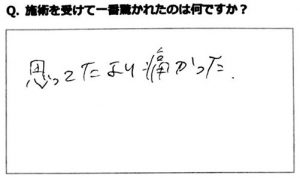 Q. 施術を受けて一番驚かれたのは何ですか？
思ってたより痛かった.